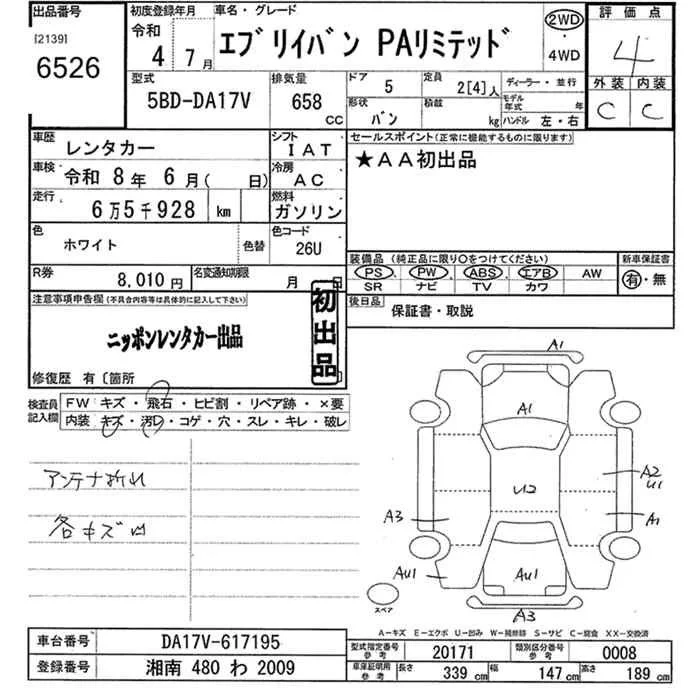 出品番号
[2139]
6526
初度登録年月
令和
4 7月
車名・グレード
エブリイバン PAリミテッド
2WD
・
4WD
評価点
4
外装 内装
C C
型式
5BD-DA17V
排気量
658
CC
ドア
5
定員
2[4]人
形状
バン
積載
kg
ディーラー・並行
モデル年式 年
ハンドル 左・右
車歴
レンタカー
シフト
IAT
車検
令和 8年 6月( 日)
冷房
AC
走行
6万5千928 km
燃料
ガソリン
色
ホワイト
色替
色コード
26U
セールスポイント(正常に機能するものに限ります)
★AA初出品
R券
8,010円
名変通知期限
月 日
装備品(純正品に限り○をつけてください)
PS PW ABS エアB AW
SR ナビ TV カワ
新車保証書
有・無
後日品
保証書・取説
注意事項申告欄(不具合内容等は具体的に記入して下さい)
ニッポンレンタカー出品
初出品
修復歴 有〔箇所
検査員記入欄
FW キズ・飛石・ヒビ割・リペア跡・×要
内装 キズ・汚れ・コゲ・穴・スレ・キレ・破レ
アンテナ折れ
各キズ凹
A1
A1
A2
U1
U2
A3
A1
AU1
AU1
A3
スペア
A-キズ E-エクボ U-凹み W-補修跡 S-サビ C-腐食 XX-交換済
車台番号
DA17V-617195
登録番号
湘南 480 わ 2009
型式指定番号
参考
20171
類別区分番号
参考
0008
車庫証明用
参考
長さ 339 cm
幅 147 cm
高さ 189 cm